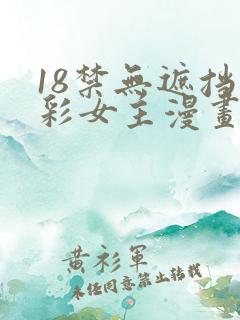 18禁無遮挡
彩女主漫畫
黄衫軍
未经同意禁止转载